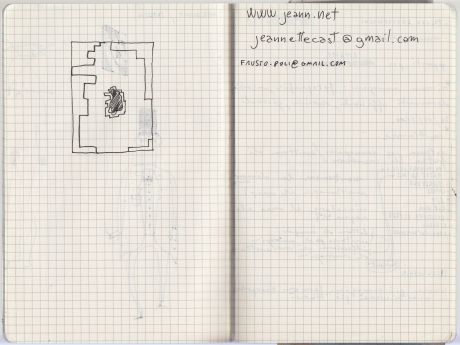 www jeann.net
jeannettecast@gmail.com
FAUSTO.POLI@GMAIL.COM